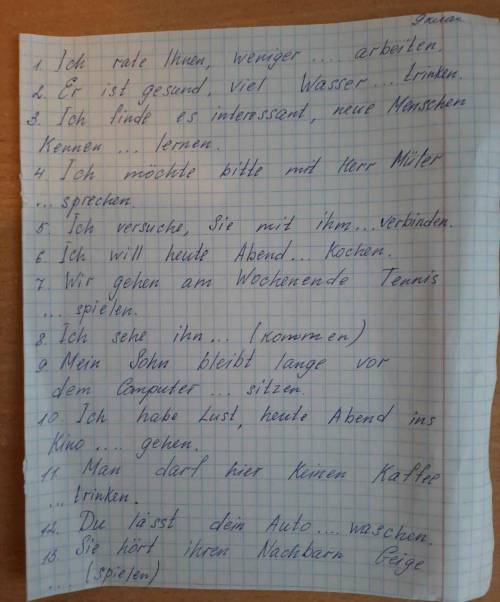 9 клас
1. Ich rate Ihnen, weniger .... arbeiten.
2. Er ist gesund, viel Wasser ... trinken.
3. Ich finde es interessant, neue Menschen
kennen ... lernen.
4 Ich möchte bitte mit Herr Müler
... sprechen.
5. Ich versuche, Sie mit ihm ... verbinden.
6. Ich will heute Abend ... kochen.
7. Wir gehen am Wochenende Tennis
... spielen.
8 Ich sehe ihn ... (kommen)
9 Mein Sohn bleibt lange vor
dem Computer ... sitzen.
10 Ich habe Lust, heute Abend ins
Kino .... gehen.
11. Man darf hier keinen Kaffee
... trinken.
12. Du lässt dein Auto .... waschen.
13. Sie hört ihren Nachbarn Geige
.... (spielen)